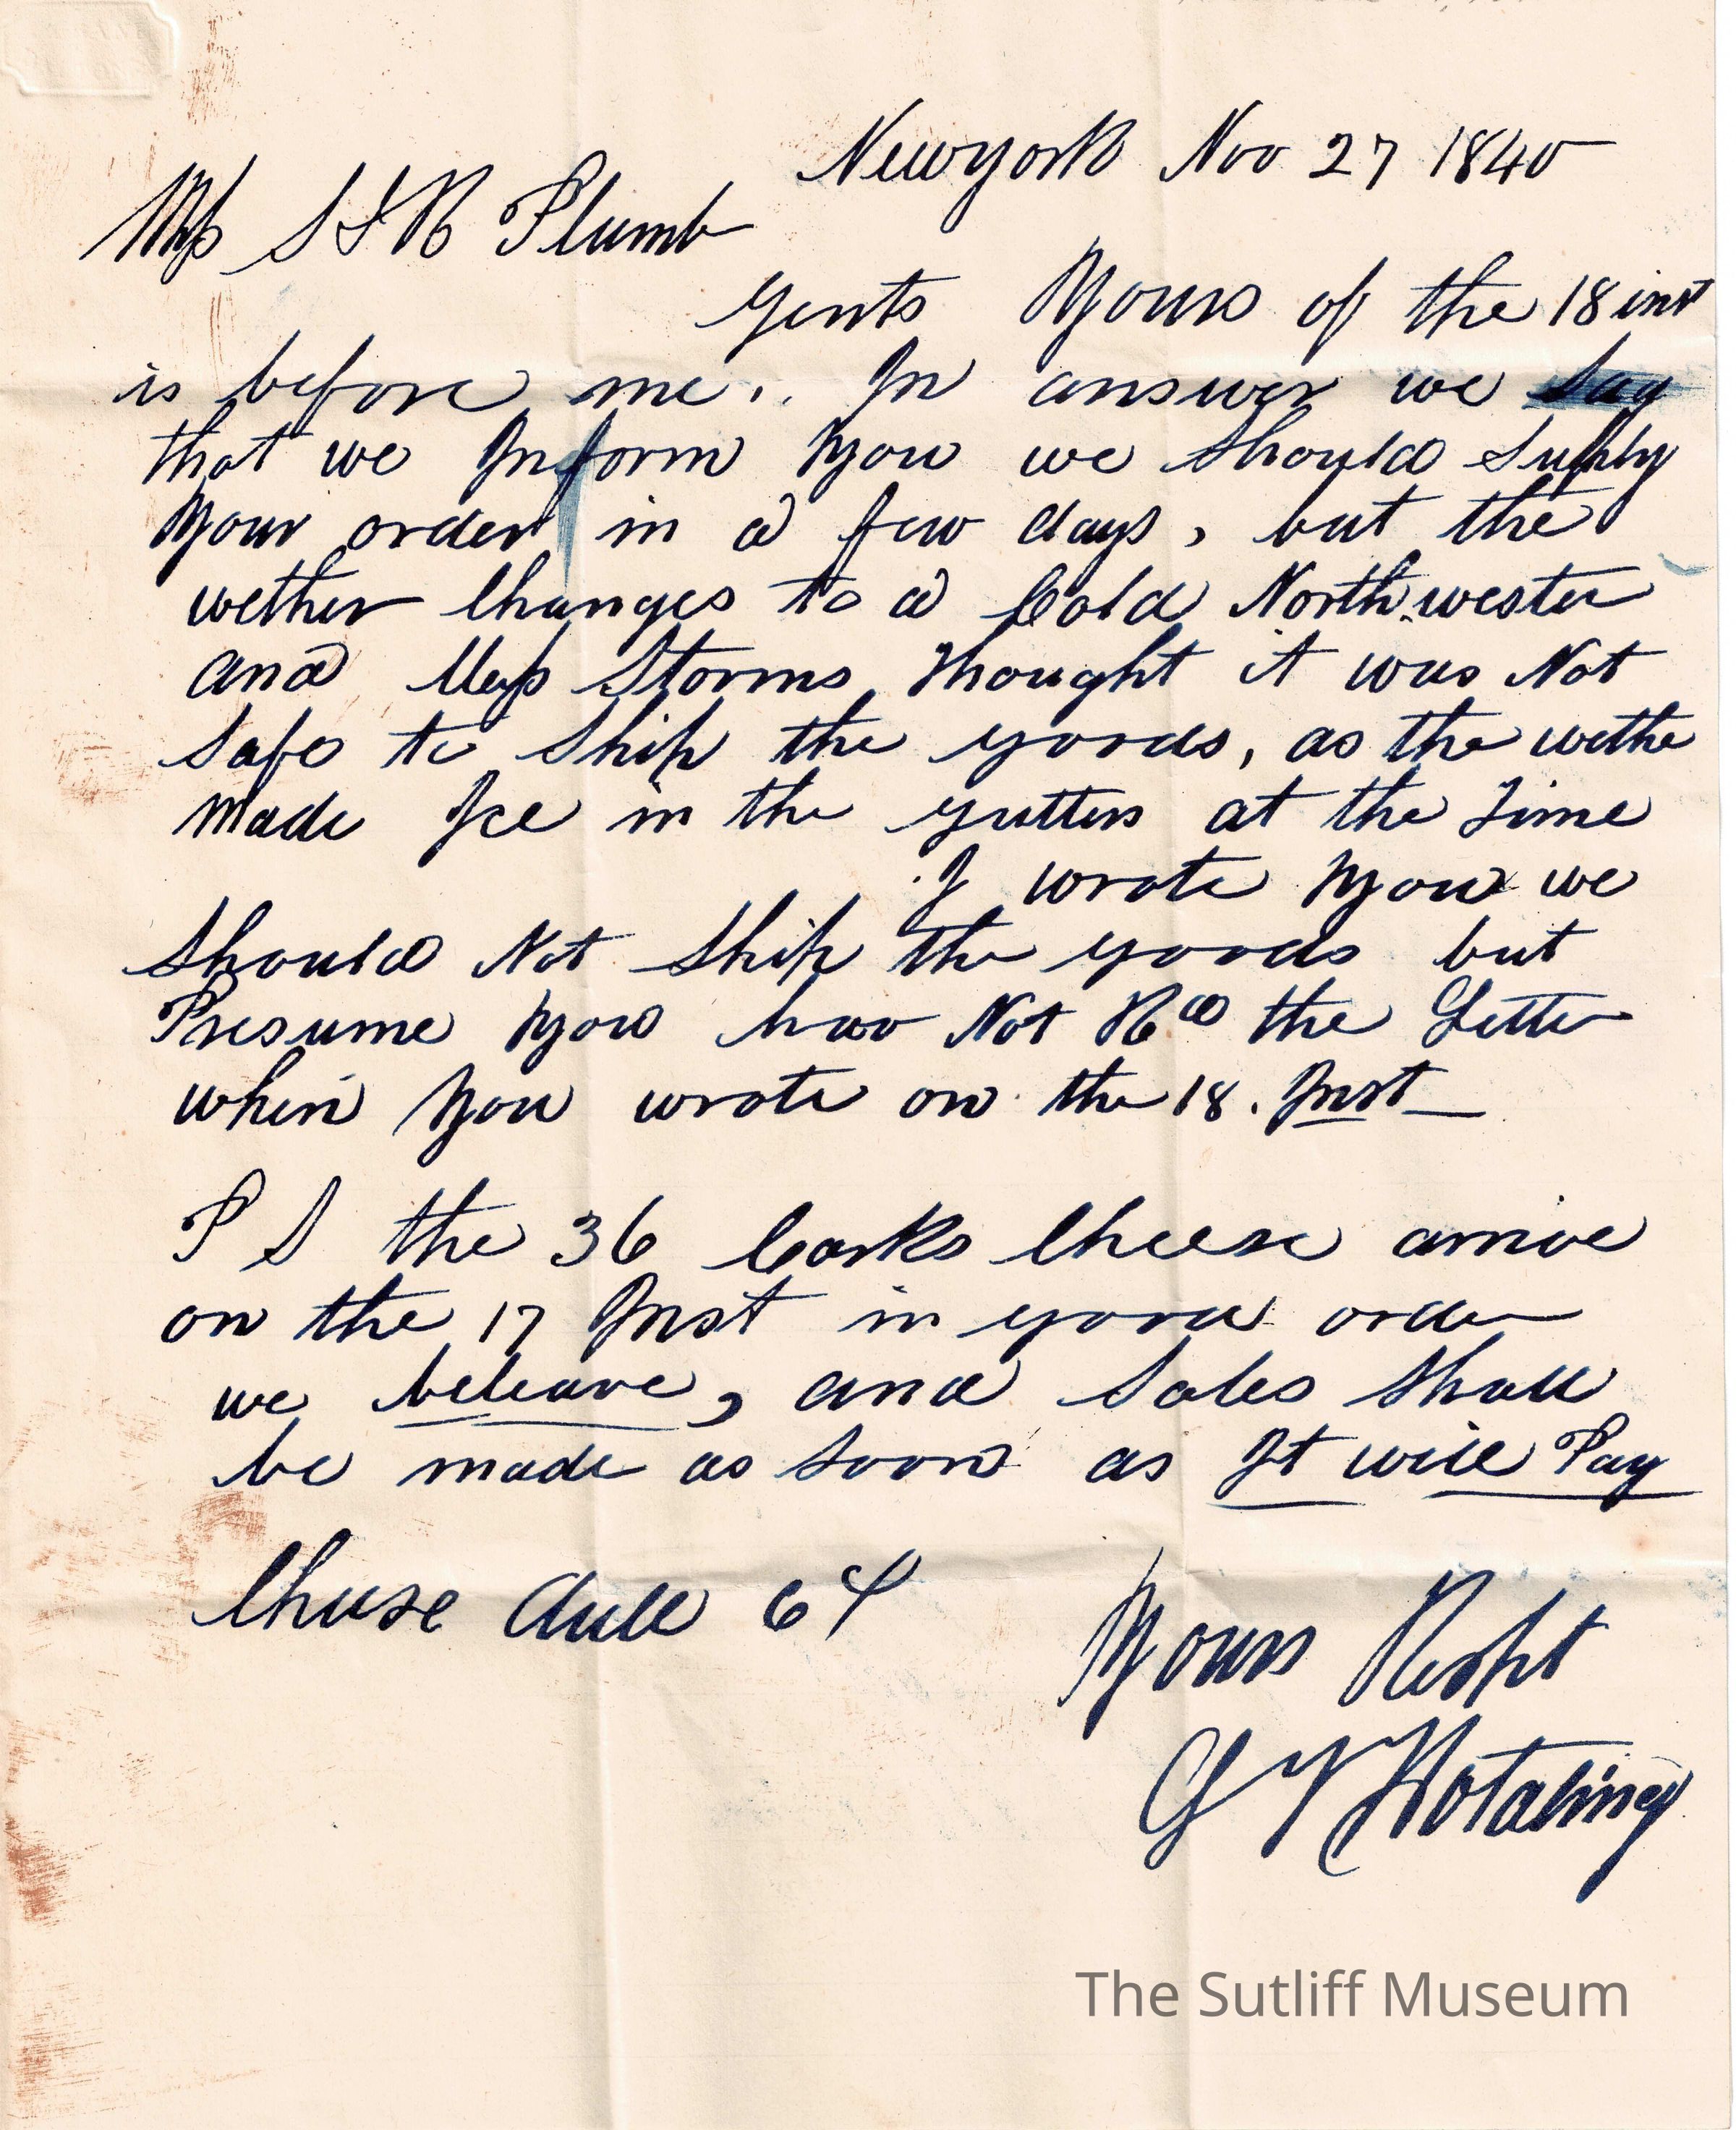 Newyork Nov 27 1840
Mss S & R Plumb
Gents Yours of the 18 inst
is before me. In answer we say
that we Inform you we should Supply
your order in a few days, but the
wether Changes to a Cold North-wester
and Mess Storms thought it was Not
Safe to Ship the goods, as the wethe
made Ice in the gutters at the Time
I wrote you we
should Not Ship the goods but
Presume you hav Not Recd the Letter
when you wrote on the 18. Inst
P S the 36 Casks Cheese arrive
on the 17 Inst in good order
we beleave, and Sales shall
be made as soon as It will Pay
Chese dull 6
Yours Respt
G Hotaling
The Sutliff Museum